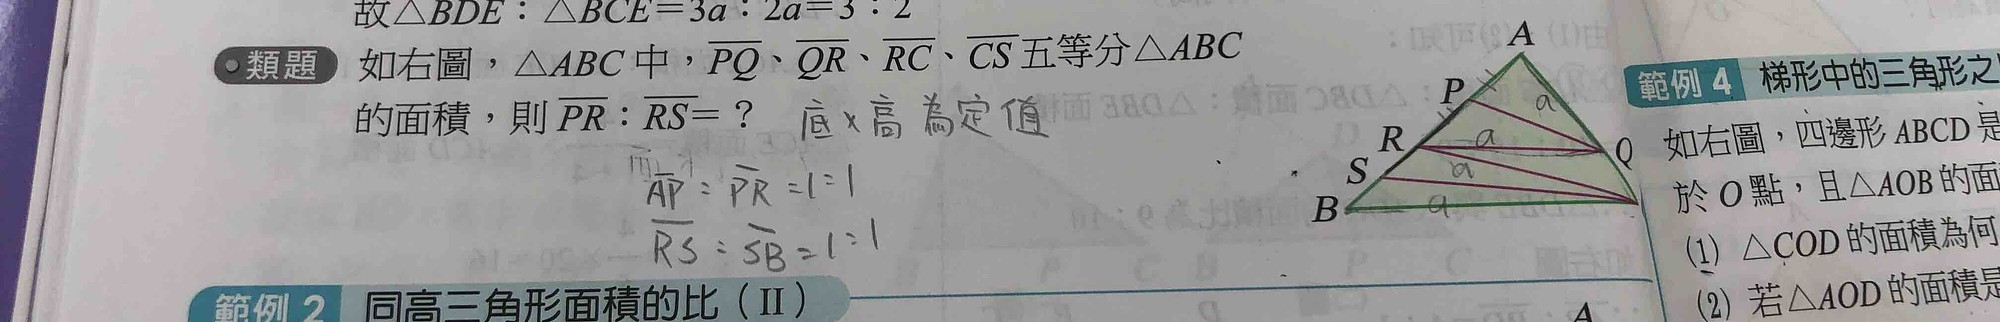 故△BDE：△BCE＝3a：2a＝3：2
類題 如右圖，△ABC 中，PQ、QR、RC、CS 五等分△ABC
的面積，則 PR：RS＝？ 底×高為定值
AP：PR＝1：1
RS：SB＝1：1
A
P
a
R
a
Q
S
a
B
a
範例 2 同高三角形面積的比（II）
範例 4 梯形中的三角形之
如右圖，四邊形 ABCD 是
於 O 點，且△AOB 的面
(1) △COD 的面積為何
(2) 若△AOD 的面積是
A